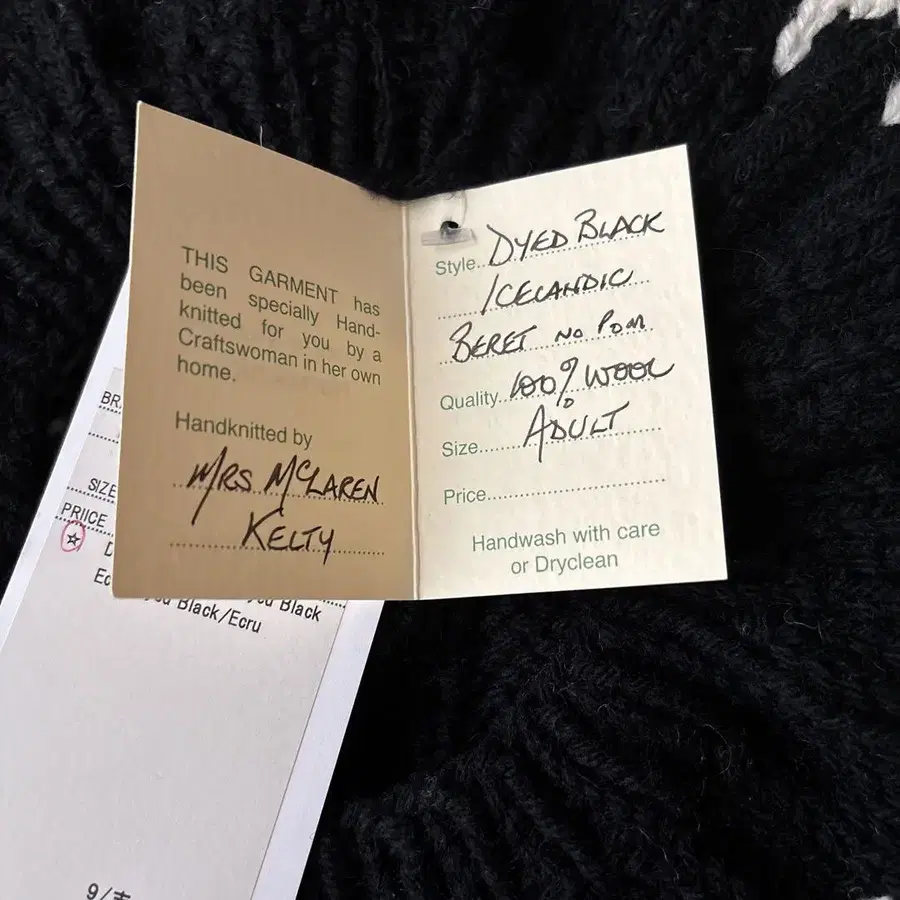 THIS GARMENT has
been specially Hand-
knitted for you by a
Craftswoman in her own
home.
Handknitted by
MRS MCLAREN
KELTY
Style..DYED BLACK
ICELANDIC
BERET NO POM
Quality..100% WOOL
Size......ADULT
Price..............................
Handwash with care
or Dryclean
BR
SIZE
PRIICE
☆ D
Ec
Black
Black/Ecru
9/